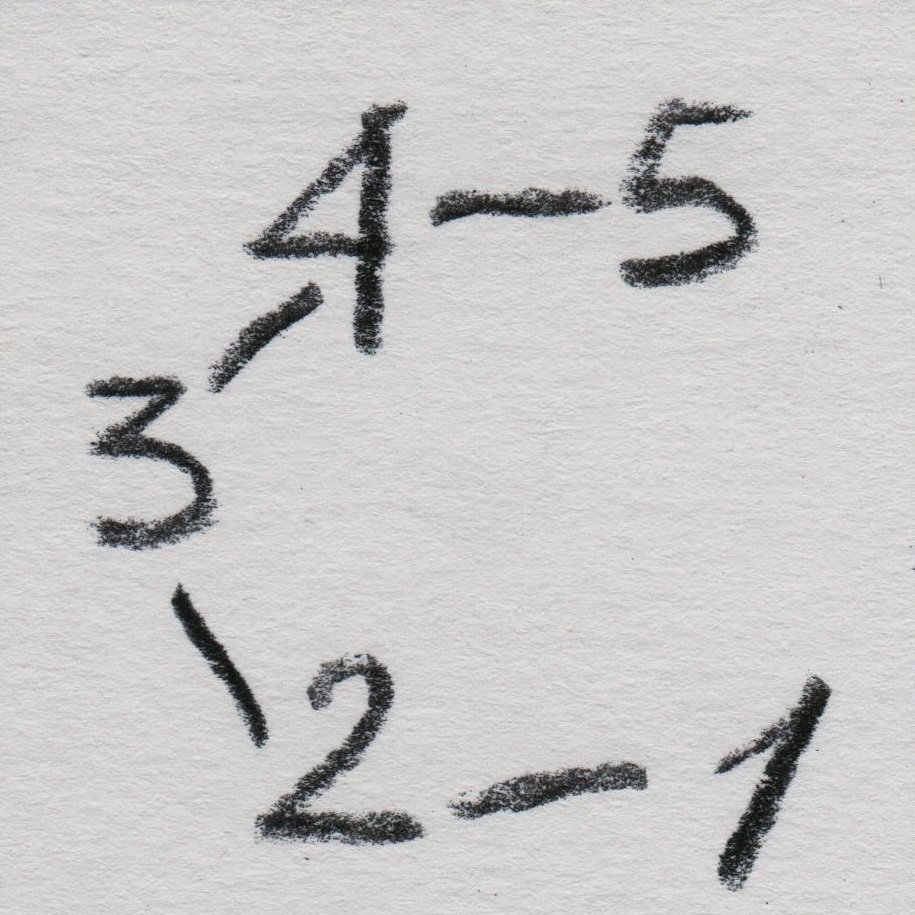 4 - 5
3
2 - 1